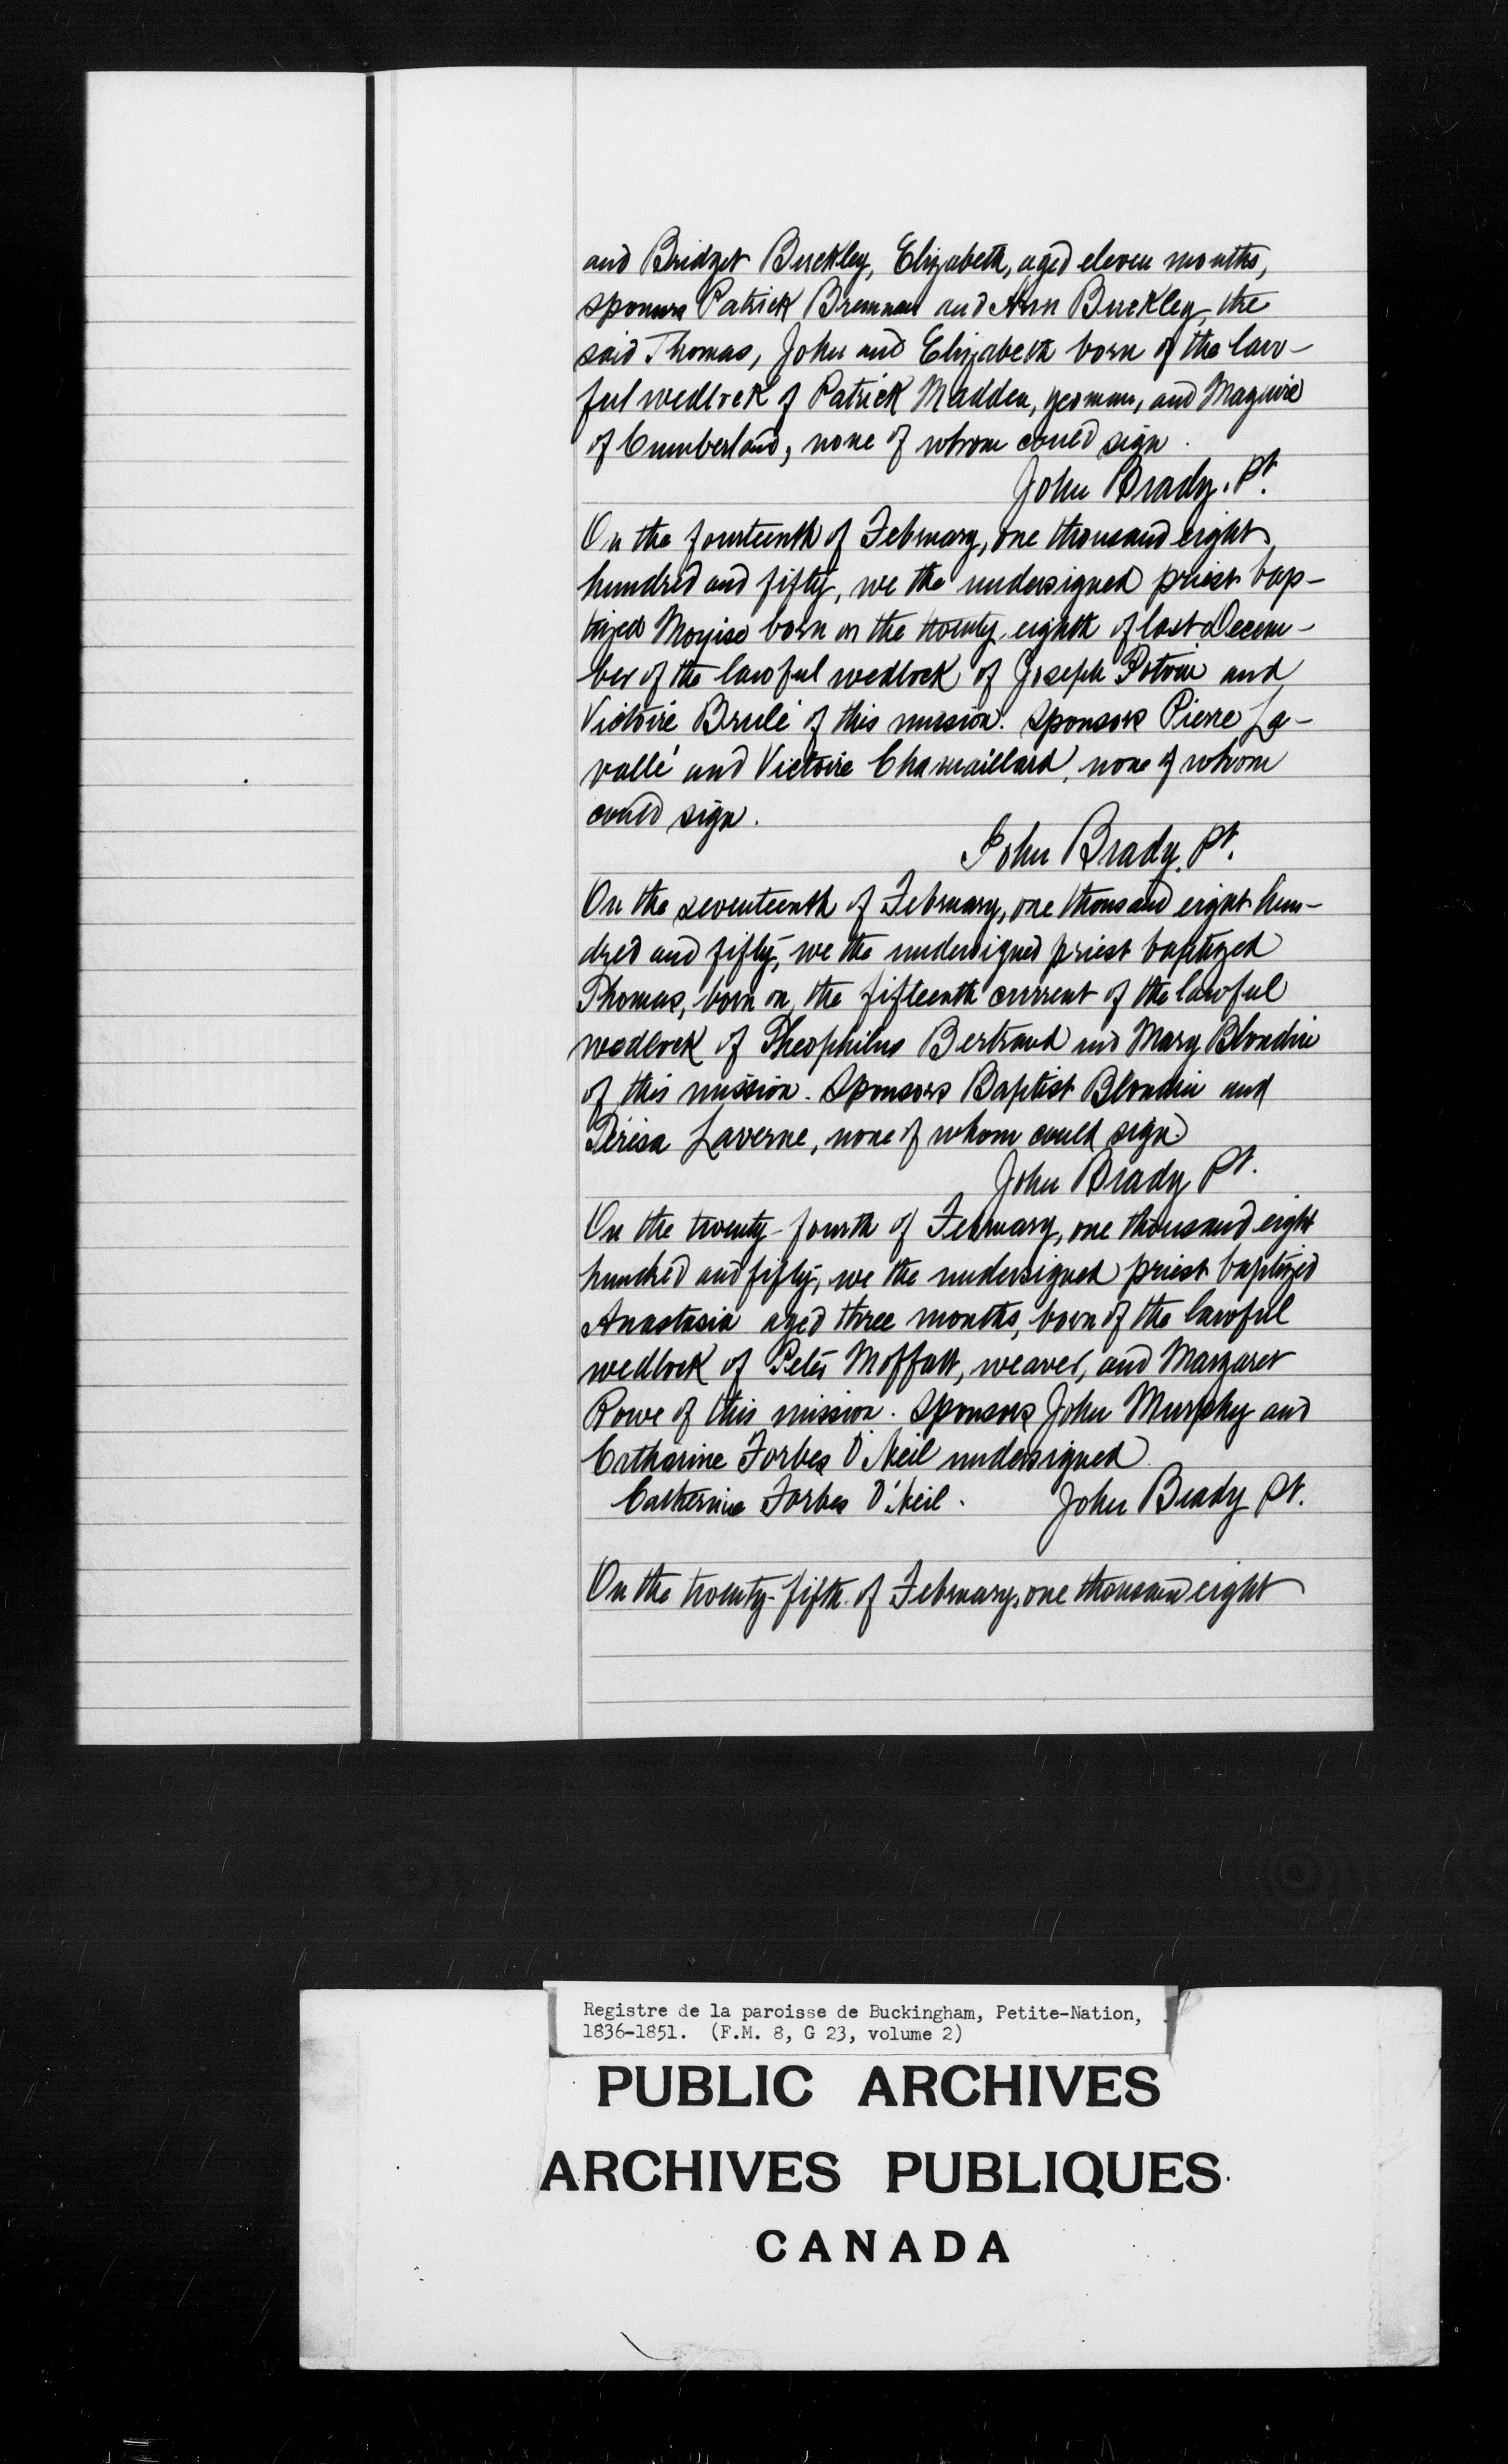 and Bridget Buckley, Elizabeth, aged eleven months,
sponsors Patrick Brennan and Ann Buckley, the
said Thomas, John and Elizabeth born of the law-
ful wedlock of Patrick Madden, yeoman, and Maguire
of Cumberland, none of whom could sign.
John Brady. Pt.
On the fourteenth of February, one thousand eight
hundred and fifty, we the undersigned priest bap-
tized Moyise born on the twenty eighth of last Decem-
ber of the lawful wedlock of Joseph Potvin and
Victoire Brulé of this mission. Sponsors Pierre La-
vallé and Victoire Chamaillard, none of whom
could sign.
John Brady. Pt.
On the seventeenth of February, one thousand eight hun-
dred and fifty, we the undersigned priest baptized
Thomas, born on the fifteenth current of the lawful
wedlock of Theophilus Bertrand and Mary Blondin
of this mission. Sponsors Baptist Blondin and
Térésa Laverne, none of whom could sign.
John Brady Pt.
On the twenty-fourth of February, one thousand eight
hundred and fifty, we the undersigned priest baptized
Anastasia aged three months, born of the lawful
wedlock of Peter Moffatt, weaver, and Margaret
Rowe of this mission. Sponsors John Murphy and
Catharine Forbes O'Neil undersigned
Catherine Forbes O'Neil. John Brady Pt.
On the twenty-fifth of February, one thousand eight
Registre de la paroisse de Buckingham, Petite-Nation,
1836-1851. (F.M. 8, G 23, volume 2)
PUBLIC ARCHIVES
ARCHIVES PUBLIQUES
CANADA